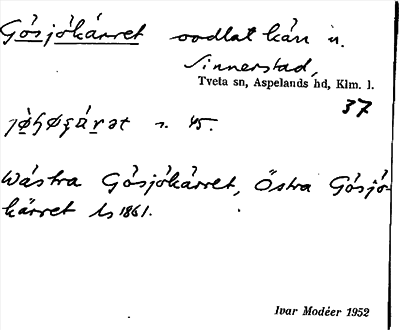 Gåsjökärret oodlat kärr n.
Sinnerstad,
Tveta sn, Aspelands hd, Klm. l.
37
n. 45.
Wästra Gåsjökärret, Östra Gåsjö-
kärret Ls 1861.
Ivar Modéer 1952